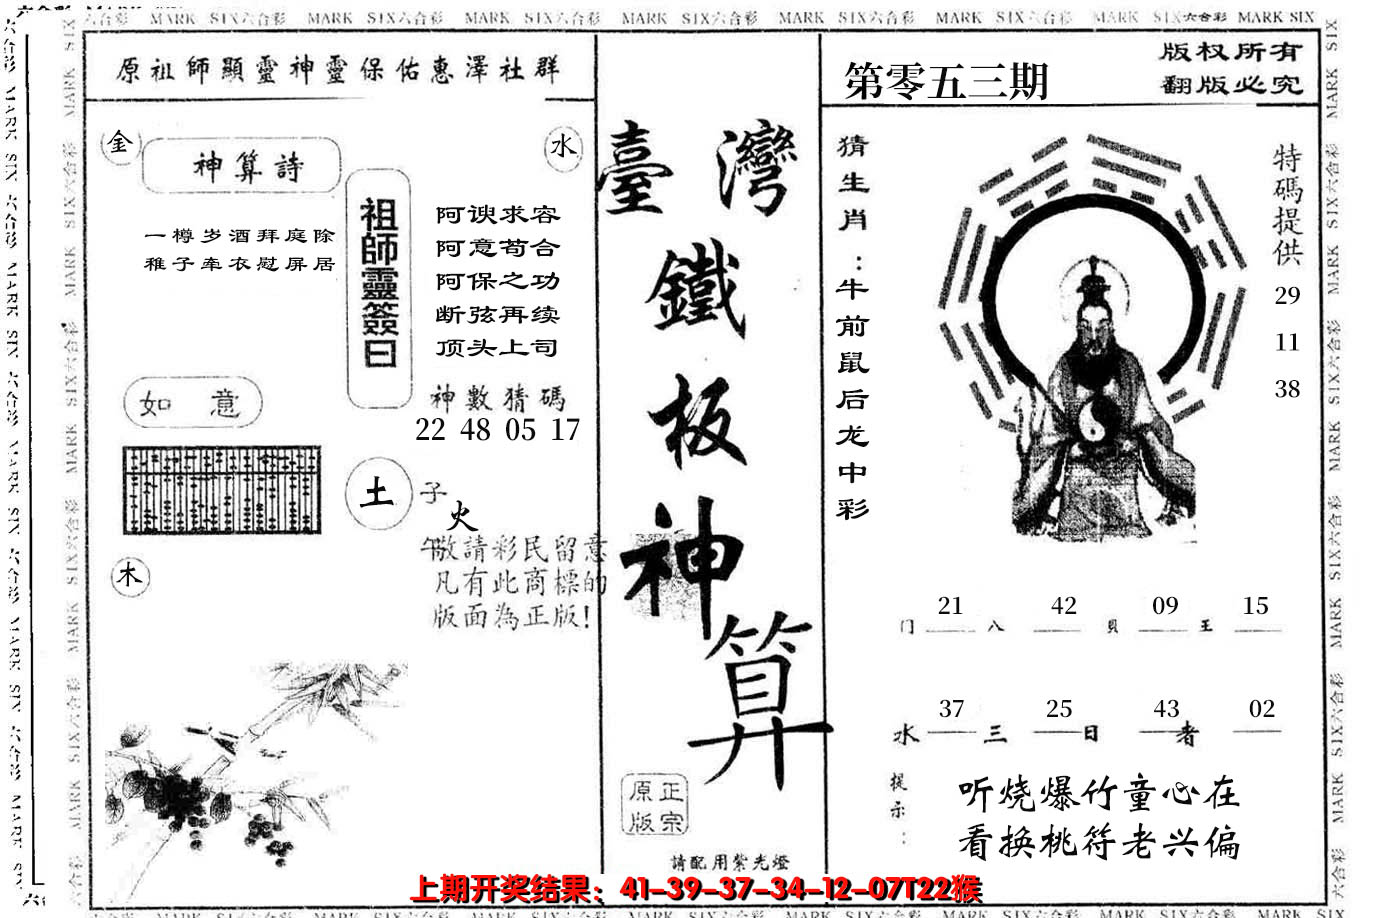 MARK SIX六合彩 MARK SIX六合彩 MARK SIX六合彩 MARK SIX六合彩 MARK SIX六合彩 MARK SIX六合彩 MARK SIX六合彩 MARK SIX
原祖師顯靈神靈保佑惠澤社群
金
水
神算詩
一樽岁酒拜庭除
稚子牵衣慰屏居
祖師靈簽曰
阿谀求容
阿意苟合
阿保之功
断弦再续
顶头上司
神數猜碼
22 48 05 17
如意
土
子
火
午
木
敬請彩民留意
凡有此商標的
版面為正版!
臺灣
鐵
板
神
算
正宗
原版
請配用紫光燈
第零五三期
版权所有
翻版必究
猜生肖:牛前鼠后龙中彩
特碼提供
29
11
38
21 42 09 15
门 八 貝 王
37 25 43 02
水 三 日 者
提示:
听烧爆竹童心在
看换桃符老兴偏
上期开奖结果：41-39-37-34-12-07T22猴